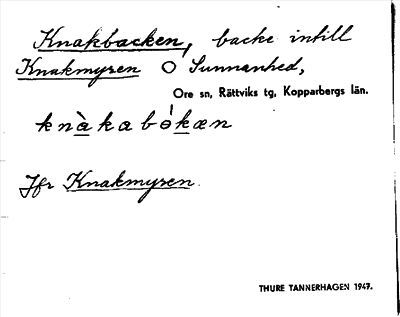 Knakbacken, backe intill
Knakmyren O Sunnanhed,
Ore sn, Rättviks tg, Kopparbergs län.
knàkabókæn
Jfr Knakmyren.
THURE TANNERHAGEN 1947.